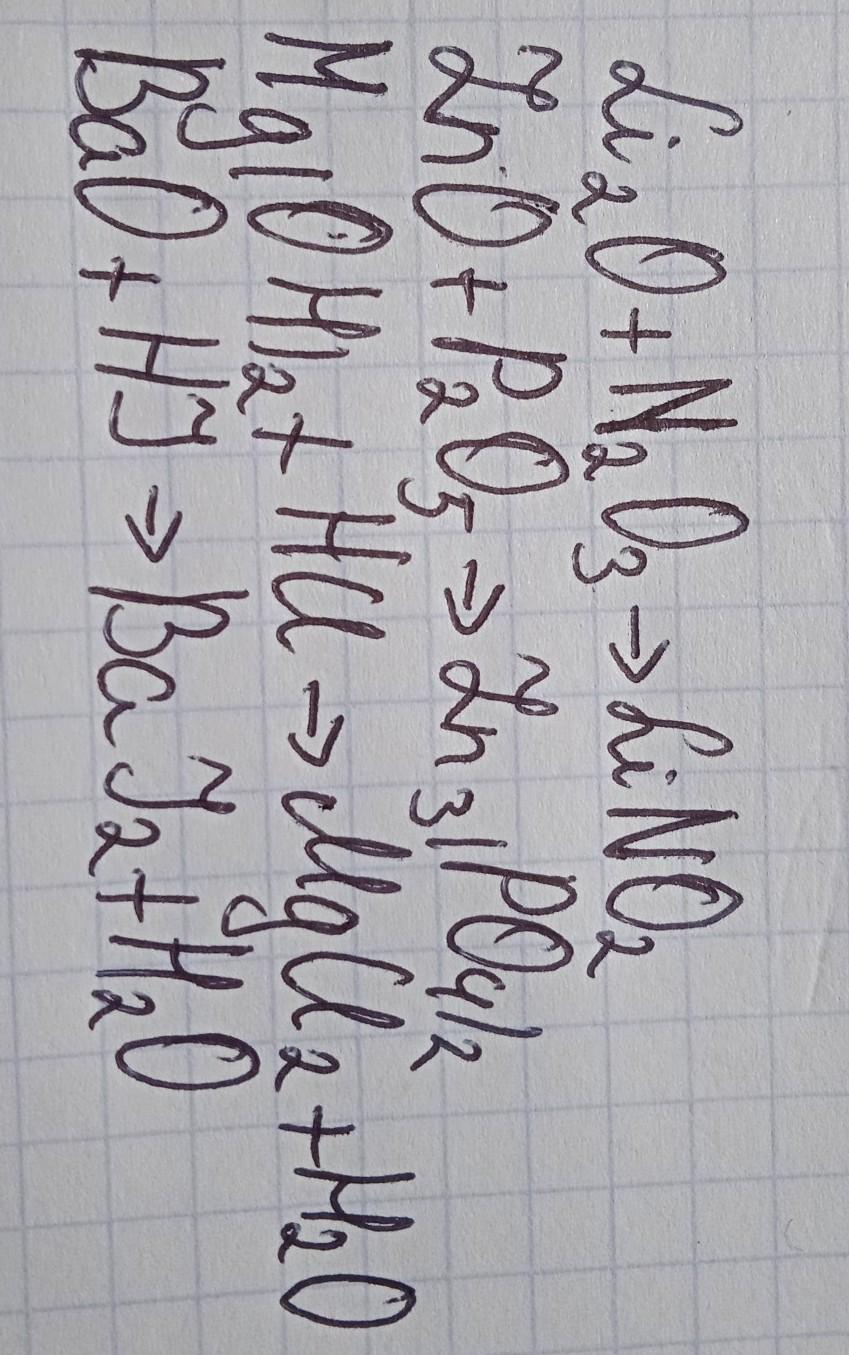 Li₂O + N₂O₃ → LiNO₂
ZnO + P₂O₅ → Zn₃(PO₄)₂
Mg(OH)₂ + HCl → MgCl₂ + H₂O
BaO + HJ → BaJ₂ + H₂O